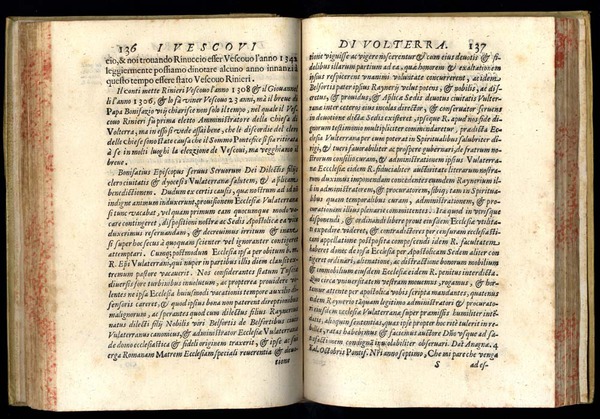 136 I VESCOVI
cio, & noi trouando Rinuccio esser Vescouo l'anno 1342
leggiermente possiamo dinotare alcuno anno innanzi à
questo tempo essere stato Vescouo Rinieri.
Il conti mette Rinieri Vescouo l'anno 1308 & il Giouannel
li l'anno 1306, & lo fà viuer Vescouo 23 anni, ma il breue di
Papa Bonifazio viij chiarisce non solo il tempo, nel quale il Ves-
couo Rinieri fu prima eletto Amministratore della Chiesa di
Volterra, ma in esso si vede assai bene, che le discordie del clero
delle Chiese sono state causa che i Sommi Pontefici si sia ritirata
à se in molti luoghi la elezzione de Vescoui, ma vegghiamo il
breue.
Bonifatius Episcopus seruus Seruorum Dei Dilectis filijs
clero ciuitatis & dyocesis Vulaterrana salutem, & aplicam
benedictionem. Dudum ex certis causis, qua nostrum ad id
indigne animum induxerunt, prouisionem Ecclesia Vulaterrana
si tunc vacabat, vel quam primum eam quocumque modo va-
care contingeret, dispositioni nostra ac Sedis Apostolica ea vice
duximus reseruandam, & decreuimus irritum & inane,
si super hoc secus à quoquam scienter vel ignoranter contigeret
attemptari. Cumq; postmodum Ecclesia ipsa per obitum b. m.
R. Epi Vulaterrani, qui nuper in partibus illis diem clausit ex-
tremum pastore vacauerit. Nos considerantes statum Tuscia
diuersis fore turbinibus inuolutum, ac propterea prouidere vo-
lentes ne ipsa Ecclesia huiusmodi vacationis tempore auxilio de-
fensionis careret, & quod ipsius bona non paterent direptionibus
malignorum, ac sperantes quod cum dilectus filius Raynerius
natus dilecti filij Nobilis viri Belfortis de Belfortibus ciuis
Vulaterranus canonicus, & administrator Ecclesia Vulaterrana
de domo ecclesiastica & fideli originem traxerit, & ipse ac sui
erga Romanam Matrem Ecclesiam speciali reuerentia & deuo-
tione
DI VOLTERRA. 137
tione viguisse ac vigere noscerentur & cum eius deuotis & fi-
delibus illarum partium ad ea, qua honorem & exaltationem
ipsius respicerent vnanimi voluntate concurrerent, ac idem
Belfortis pater ipsius Raynerij velut potens, & nobilis, ac di-
scretus, & prouidus, & Aplica Sedis deuotus ciuitatis Vulater-
rana inter ceteros eius incolas director, & conseruator seruens
in deuotione dicta Sedis existeret, ipseque R. apud nos fide di-
gnorum testimonio multipliciter commendaretur, pradicta Ec-
clesia Vulaterrana per eum poterat in Spiritualibus salubriter di-
rigi, & vtiliter in temporalibus ac prospere gubernari, de fratrum no-
strorum consilio curam, & administrationem ipsius Vulaterra-
na Ecclesia eidem R. fiducialiter auctoritate literarum nostra-
rum duximus imponendam concedentes eundem Raynerium il-
lis in administratorem, & procuratorem, sibiq; tam in Spiritua-
libus quam temporalibus curam, administrationem, & pro-
curationem illius plenarie committentes. Ita quod in vtrisque
disponendi, & ordinandi libere prout eiusdem Ecclesia vtilita-
ti expedire videret, & contradictores per censuram ecclesiasti-
cam appellatione postposita compescendi idem R. facultatem
haberet donec de ipsa Ecclesia per Apostolicam Sedem aliter con-
tigeret ordinari, alienatione, ac distractione bonorum mobilium
& immobilium eiusdem Ecclesia eidem R. penitus interdicta.
Quo circa vniuersitatem vestram monemus, rogamus, & hor-
tamur attente per apostolica vobis scripta mandantes, quatenus
eidem Raynerio tamquam legitimo administratori & procurato-
ri eiusdem ecclesia Vulaterrana super pramissis humiliter inten-
dentes, alioquin sententias, quas ipse propter hoc ritè tulerit in re-
belles, ratas habebimus & faciemus auctore Dño vsque ad sa-
tisfactionem condignã inuiolabiliter obseruari. Dat Anagnæ. 4
Kal. Octobris Pontif. Nri anno septimo, Che mi pare che venga
S ades-